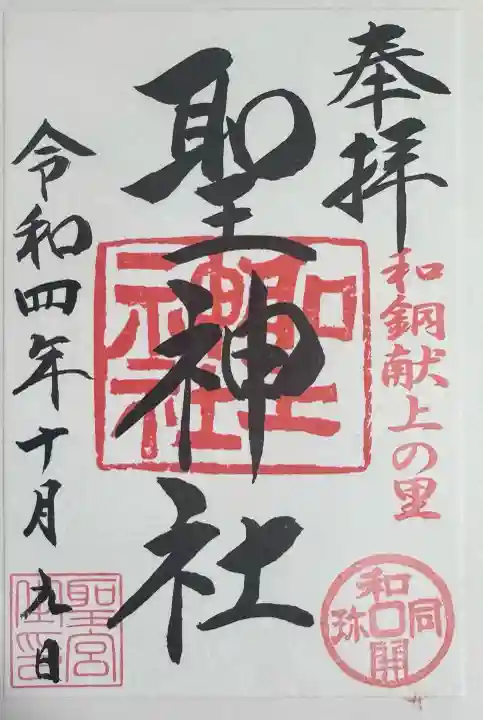 奉拝
和銅献上の里
和同開珎
聖神社
聖神社
令和四年十月九日
聖宮